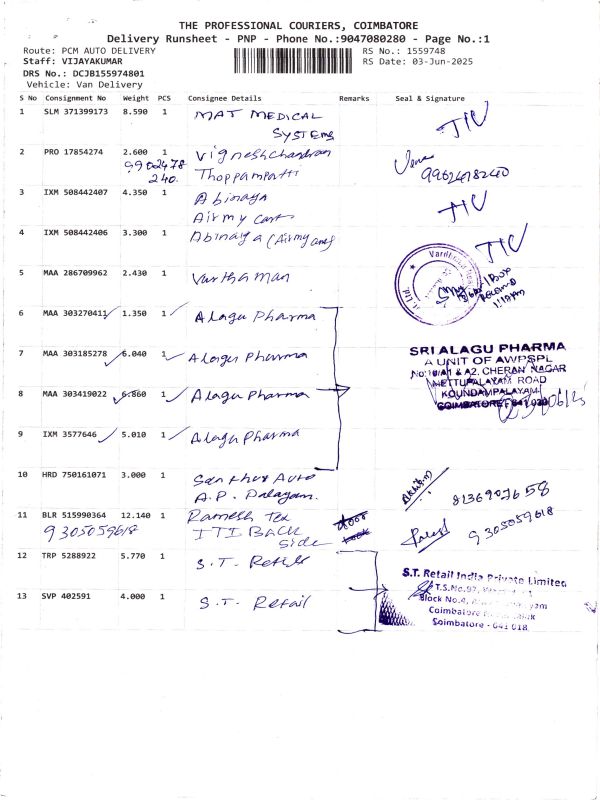 THE PROFESSIONAL COURIERS, COIMBATORE
Delivery Runsheet - PNP - Phone No.:9047080280 - Page No.:1
Route: PCM AUTO DELIVERY
RS No.: 1559748
Staff: VIJAYAKUMAR
RS Date: 03-Jun-2025
DRS No.: DCJB155974801
Vehicle: Van Delivery
S No Consignment No Weight PCS Consignee Details Remarks Seal & Signature
1 SLM 371399173 8.590 1 MAT MEDICAL
SYSTEMS
2 PRO 17854274 2.600 1 Vignesh chandran
9902478
240. Thoppampatti
9962478240
3 IXM 508442407 4.350 1 Abinaya
Airmy cart
4 IXM 508442406 3.300 1 Abinaya (Airmy
5 MAA 286709962 2.430 1 Vardhaman
1 Box
6 MAA 303270411 1.350 1 Alagu Pharma
7 MAA 303185278 6.040 1 Alagu Pharma
SRI ALAGU PHARMA
A UNIT OF AWPSPL
No: & A2, CHERAN NAGAR
METTUPALAYAM ROAD
KOUNDAMPALAYAM
COIMBATORE
8 MAA 303419022 6.860 1 Alagu Pharma
9 IXM 3577646 5.010 1 Alagu Pharma
10 HRD 750161071 3.000 1 Auto
A.P. Palayam.
11 BLR 515990364 12.140 1 Ramesh Tex
9305059618 ITI Back
Side
9305059618
12 TRP 5288922 5.770 1 S.T. Retail
S.T. Retail India Private Limited
T.S.No.97,
Block No.4,
Coimbatore
Coimbatore - 641 018.
13 SVP 402591 4.000 1 S.T. Retail